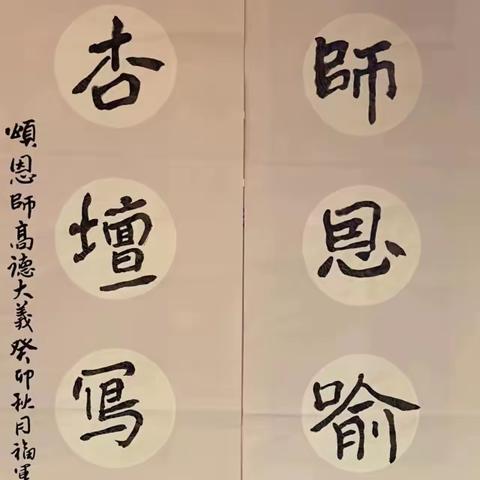 師恩喻
杏壇寫
頌恩師高德大義癸卯秋月福軍